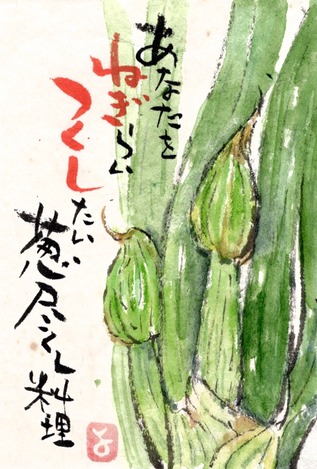 あなたを
ねぎらい
つくし
たい
葱尽くし
料理
と